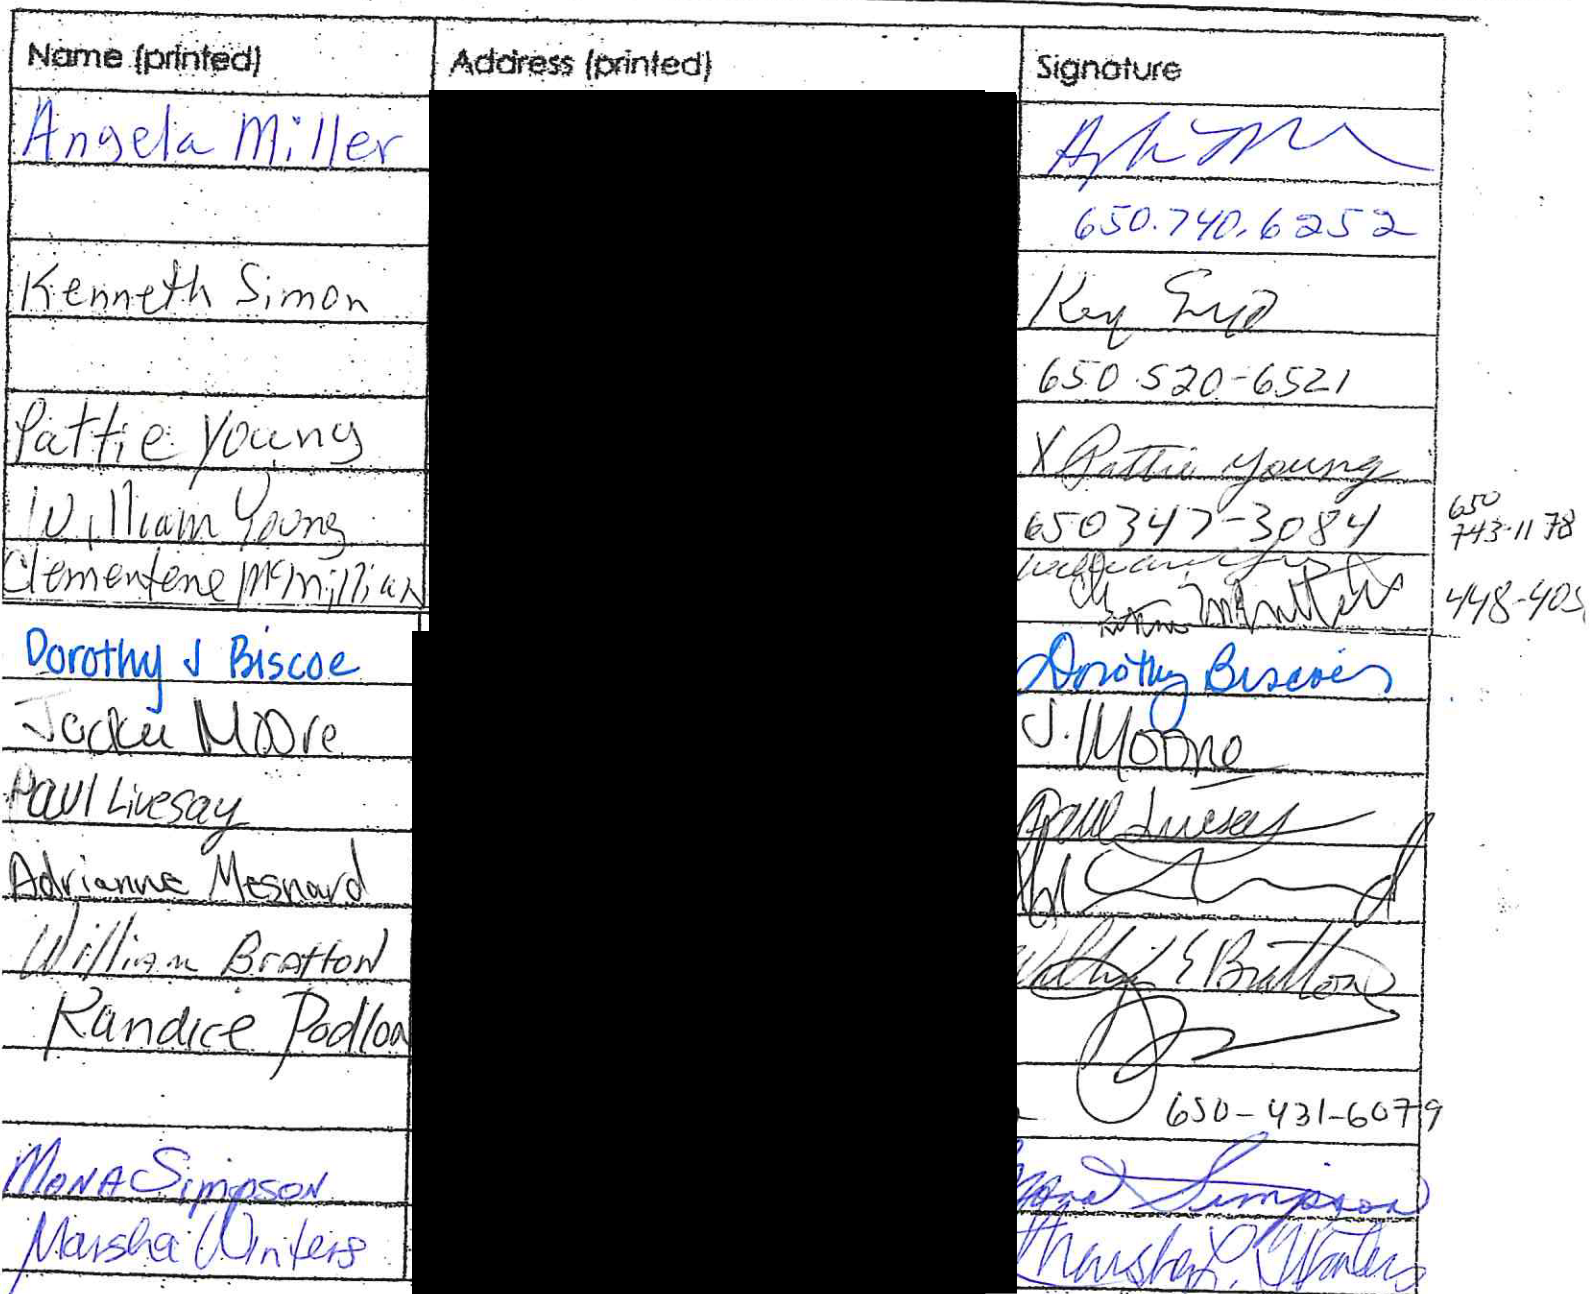 Name (printed) Address (printed) Signature
Angela Miller
650.740.6252
Kenneth Simon
650 520-6521
Pattie Young X Pattie Young
William Young 650 347-3084 650 743-1178
Clementene McMillian 448-405
Dorothy J Biscoe Dorothy Biscoe
Jackie Moore J. Moore
Paul Livesay Paul Livesay
Adrianne Mesnard
William Bratton William E Bratton
Kandice Podloa
650-431-6079
Mona Simpson Mona Simpson
Marsha Winters Marsha L. Winters